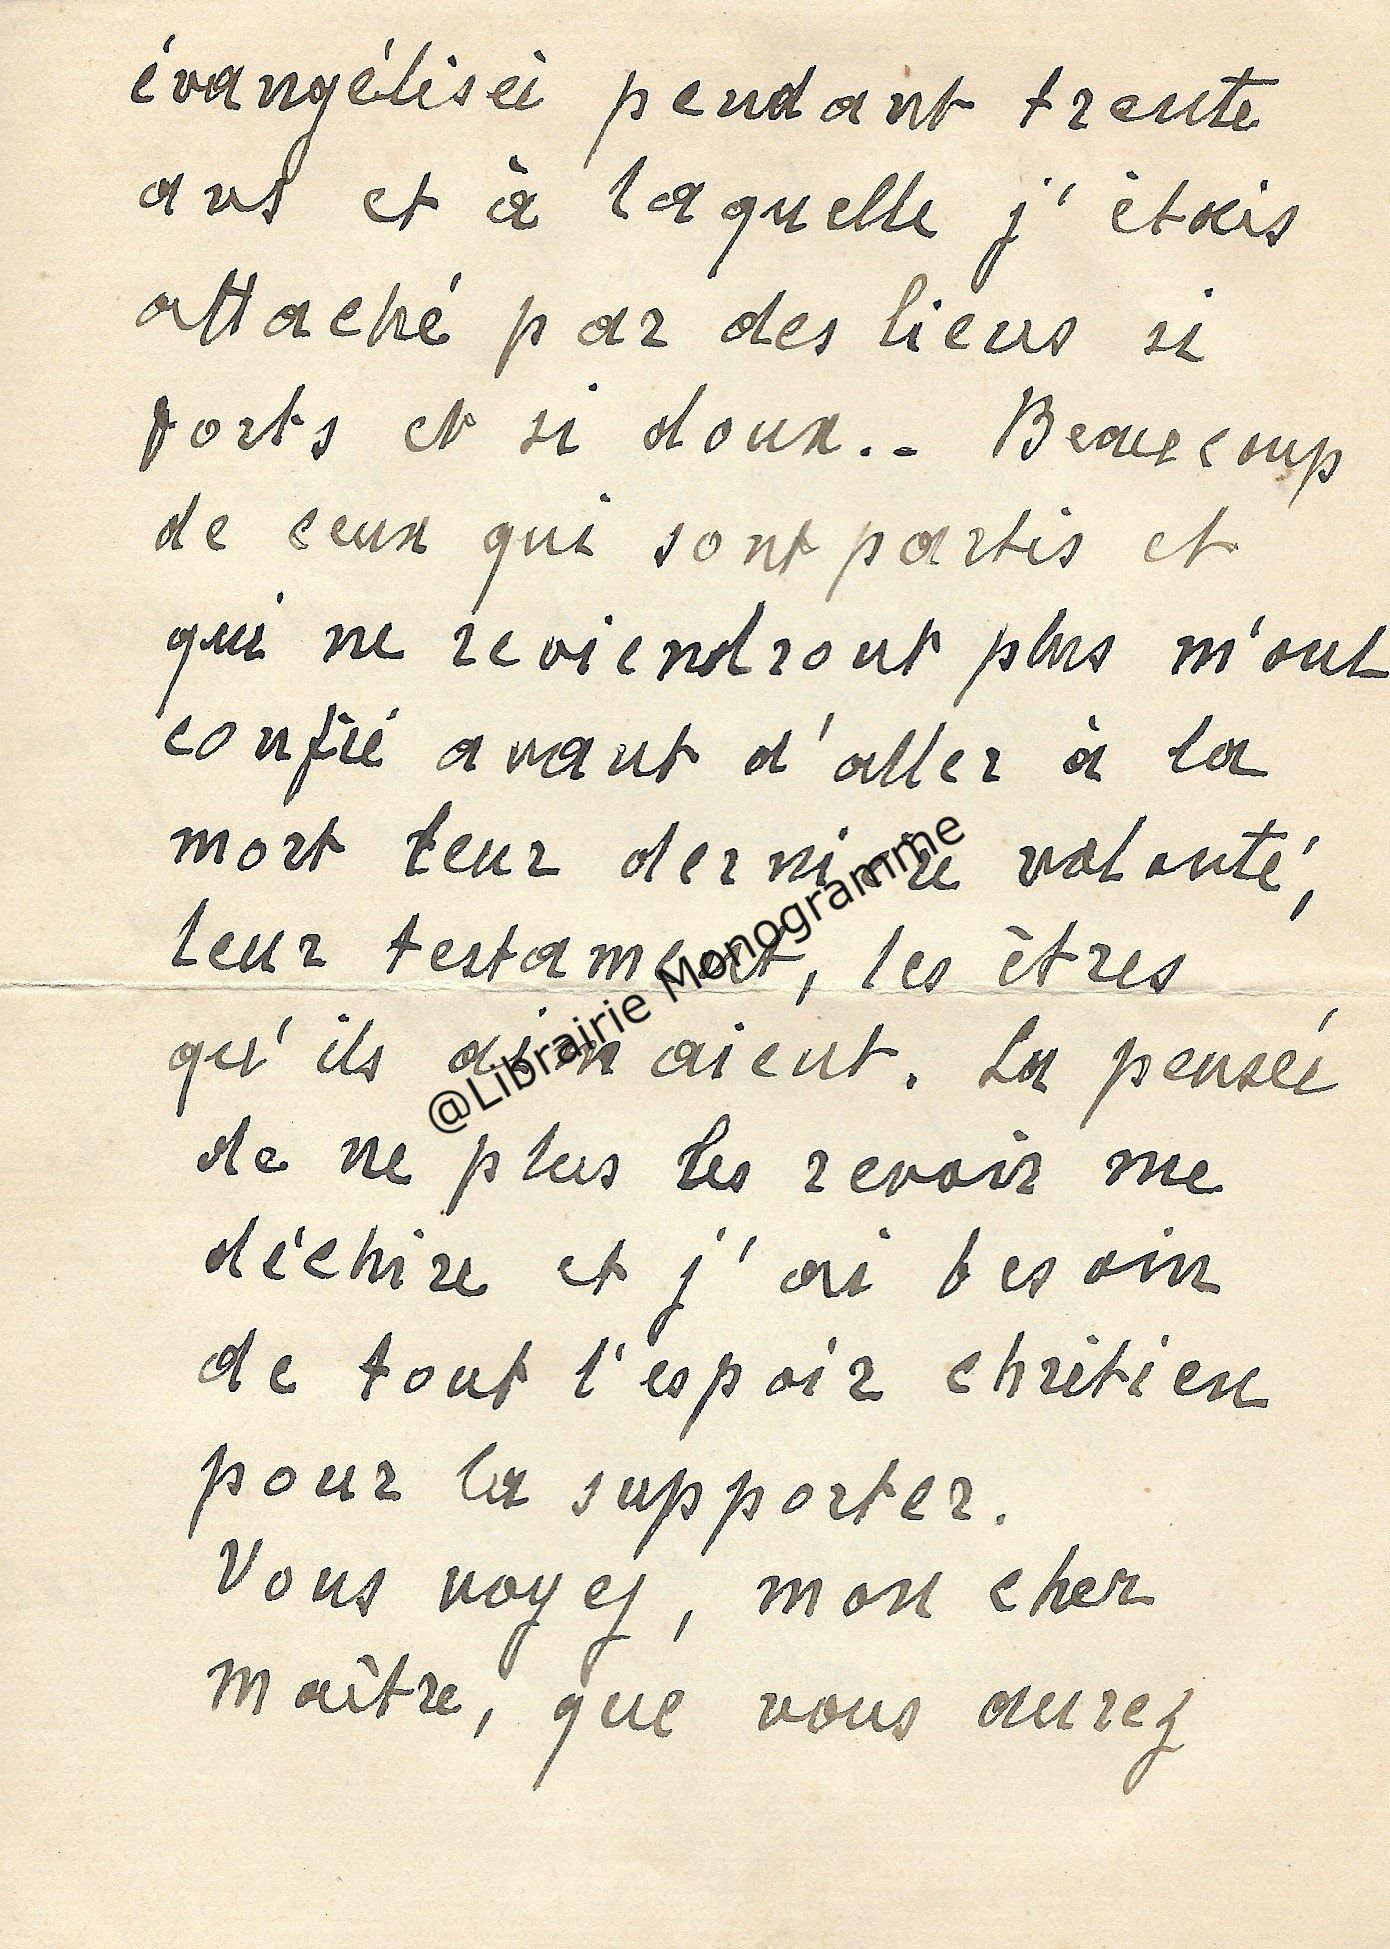 évangélisée pendant trente
ans et à laquelle j'étais
attaché par des liens si
forts et si doux.. Beaucoup
de ceux qui sont partis et
qui ne reviendront plus m'ont
confié avant d'aller à la
mort leur dernière volonté,
leur testament, les êtres
qu'ils aimaient. La pensée
de ne plus les revoir me
déchire et j'ai besoin
de tout l'espoir chrétien
pour la supporter.
Vous voyez, mon cher
Maître, que vous aurez
@Librairie Monogramme